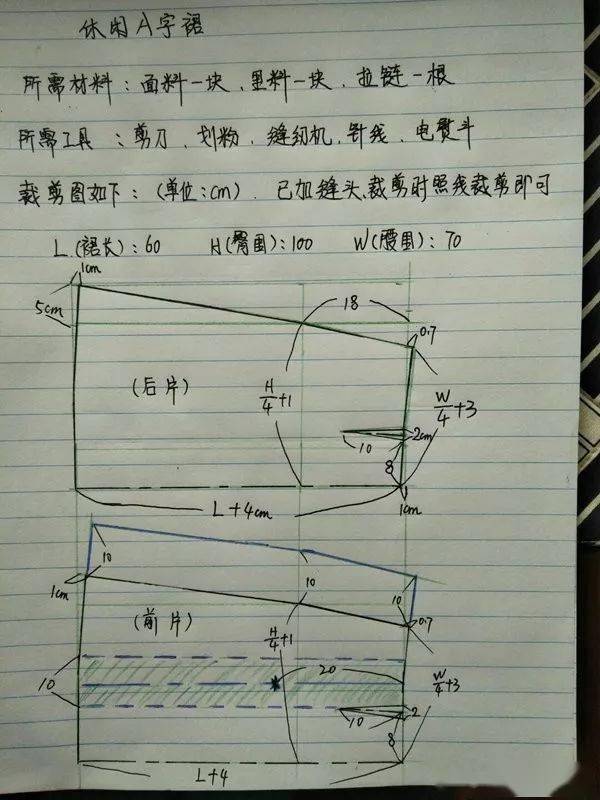 休闲A字裙
所需材料：面料一块、里料一块、拉链一根
所需工具：剪刀、划粉、缝纫机、针线、电熨斗
裁剪图如下：(单位：cm)、已加缝头、裁剪时照线裁剪即可
L(裙长)：60 H(臀围)：100 W(腰围)：70
1cm
5cm
18
0.7
(后片)
H/4+1
W/4+3
2cm
10
8
L+4cm
1cm
10
10
10
1cm
0.7
(前片)
H/4+1
20
W/4+3
10
10
2
8
L+4